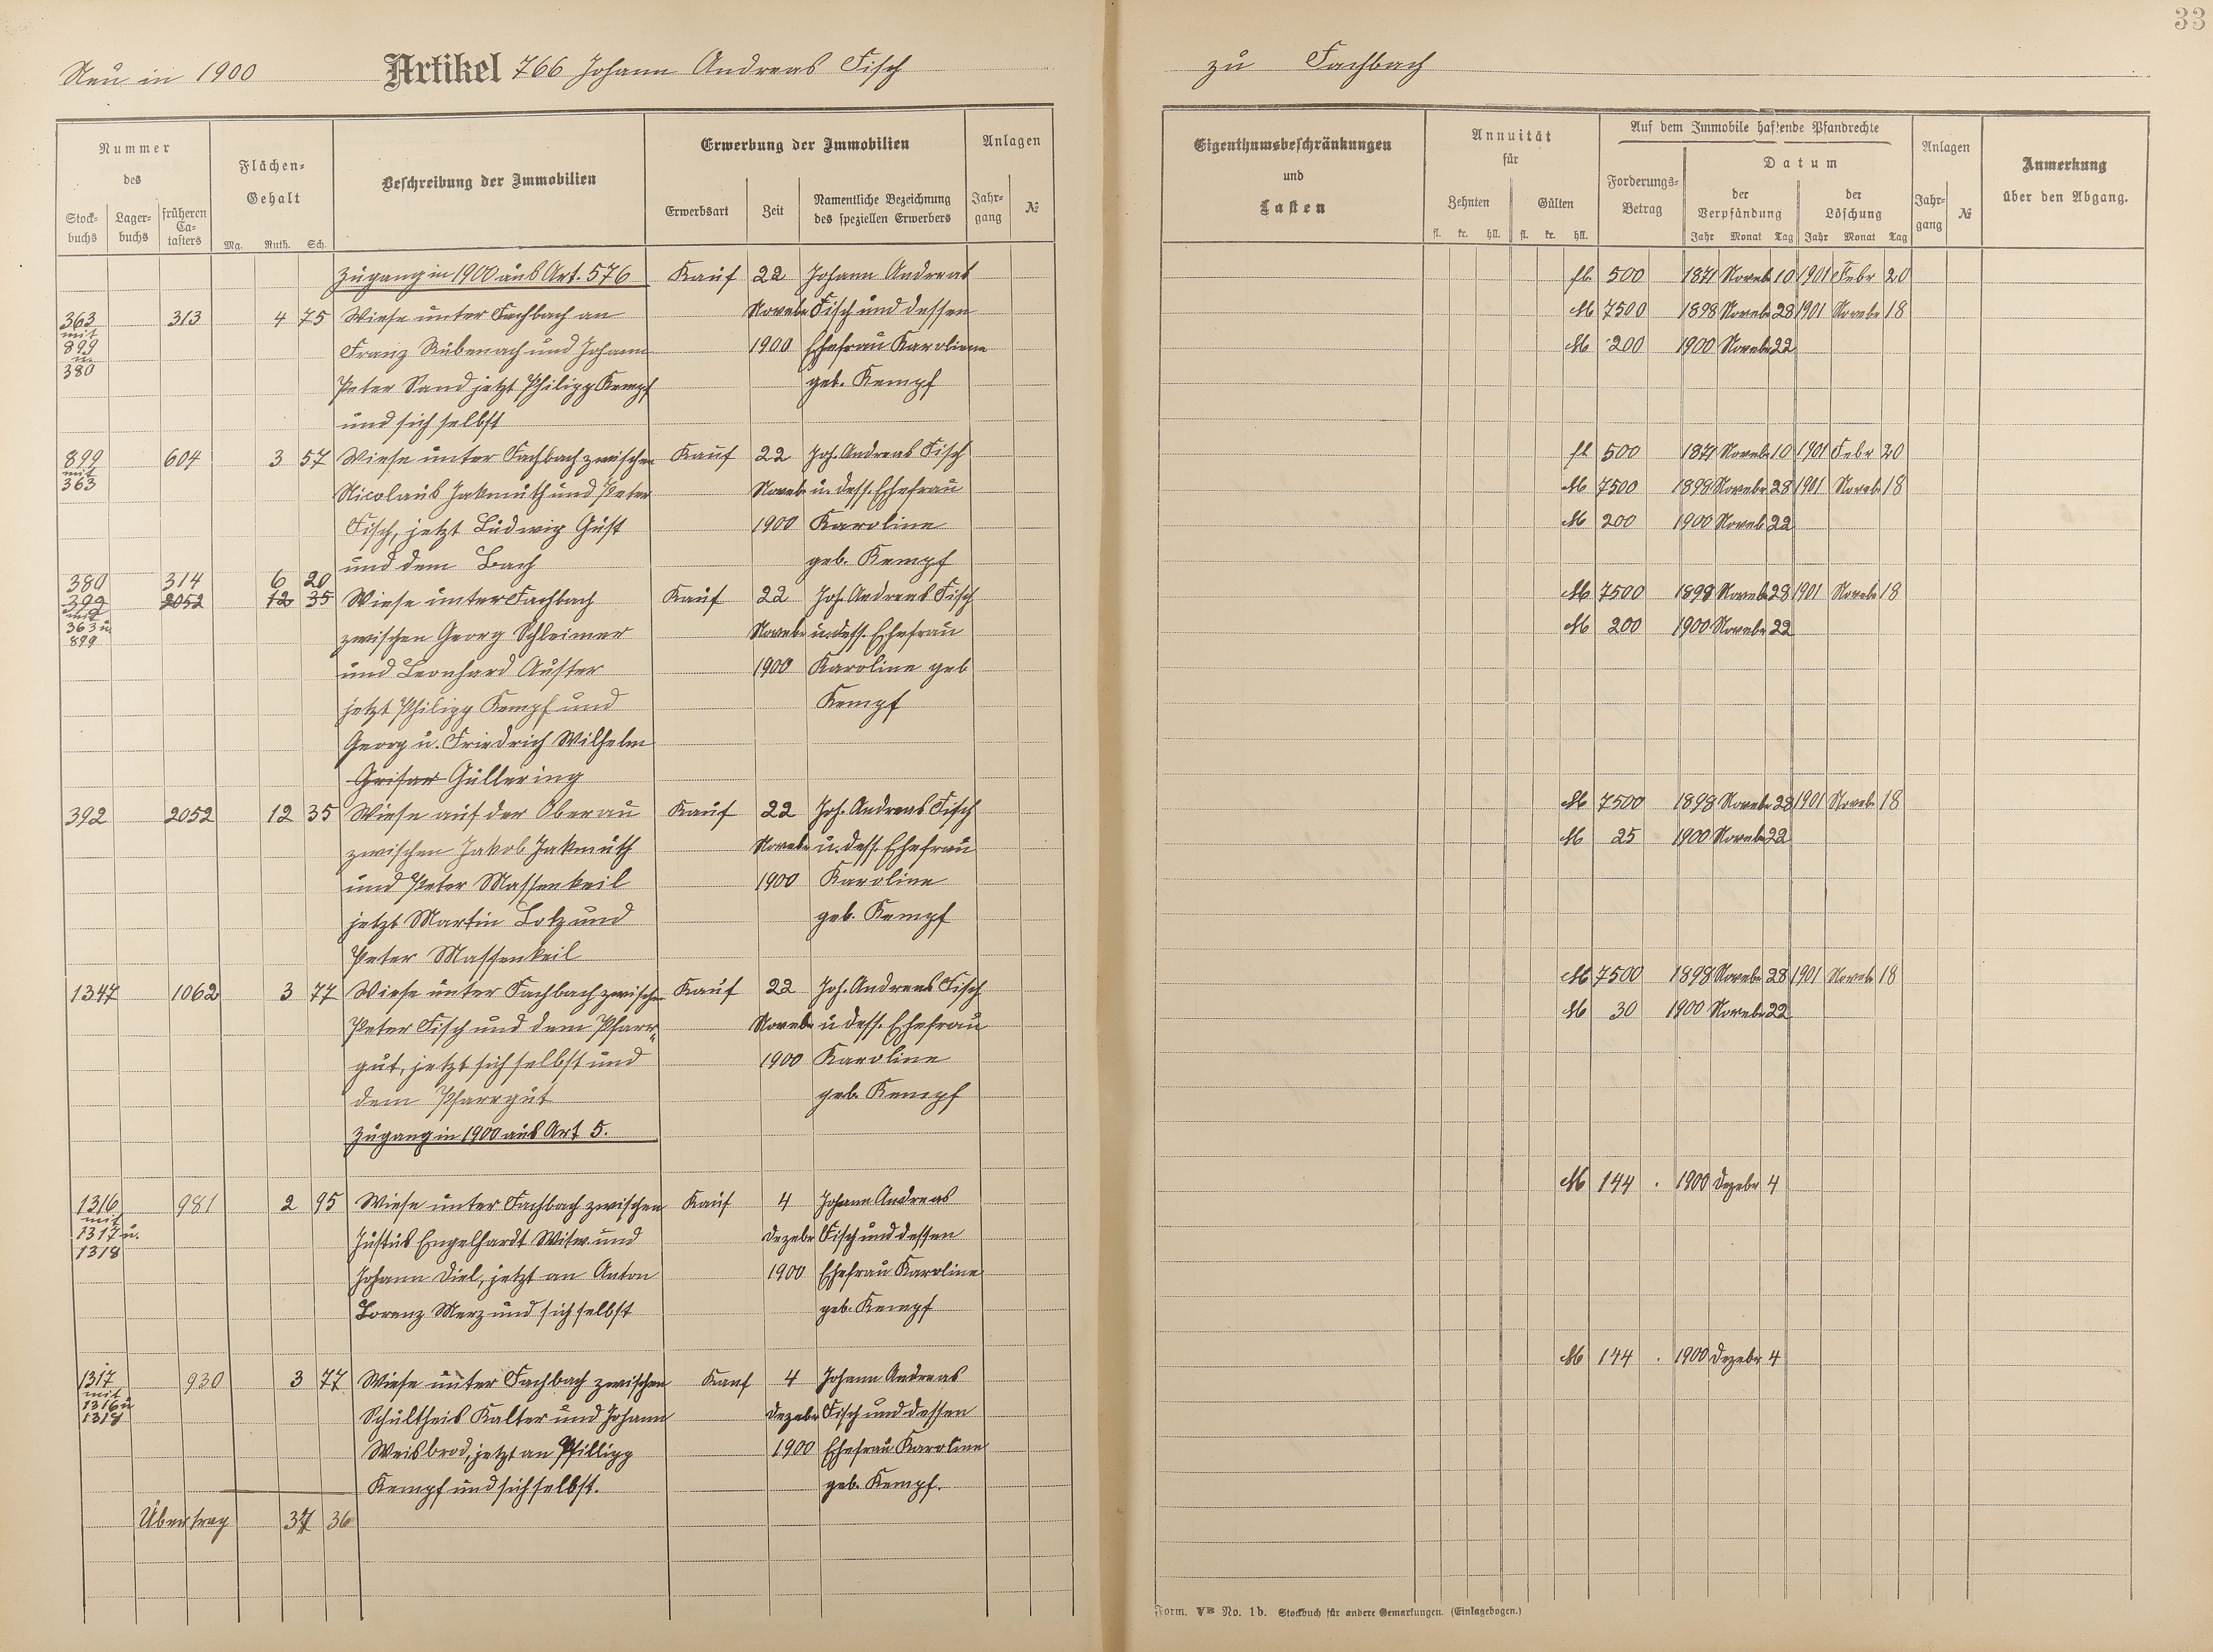 33
Neu in 1900 Artikel 766 Johann Andreas Fisch
zu Fachbach
Nummer des
Stock-buchs Lager-buchs früheren Ca-tasters
Flächen-Gehalt
Mg. Ruth. Sch.
Beschreibung der Immobilien
Erwerbung der Immobilien
Erwerbsart Zeit Namentliche Bezeichnung des speziellen Erwerbers
Anlagen
Jahr-gang №
Eigenthumsbeschränkungen und Lasten
Annuität für
Zehnten Gülten
fl. kr. hll. fl. kr. hll.
Auf dem Immobile haftende Pfandrechte
Forderungs-Betrag
Datum
der Verpfändung der Löschung
Jahr Monat Tag Jahr Monat Tag
Anlagen
Jahr-gang №
Anmerkung über den Abgang.
Zugang in 1900 aus Art. 576 Kauf 22 Johann Andreas
363 313 4 75 Wiese unter Fachbach an Novebr Fisch und dessen
mit
899 Franz Rübenach und Johann 1900 Ehefrau Karoline
u.
380 Peter Sand jetzt Philipp Kempf geb. Kempf
und sich selbst
899 604 3 57 Wiese unter Fachbach zwischen Kauf 22 Joh. Andreas Fisch
mit
363 Nicolaus Jakmuth und Peter Novebr u. dess. Ehefrau
Fisch, jetzt Ludwig Gust 1900 Karoline
und dem Bach geb. Kempf
380 314 6 20
392 2052 12 35 Wiese unter Fachbach Kauf 22 Joh. Andreas Fisch
mit
363 u.
899 zwischen Georg Schleimer Novebr u. dess. Ehefrau
und Leonhard Auster 1900 Karoline geb
jetzt Philipp Kempf und Kempf
Georg u. Friedrich Wilhelm
Grisar Güllering
392 2052 12 35 Wiese auf der Oberau Kauf 22 Joh. Andreas Fisch
zwischen Jakob Jakmuth Novebr u. dess. Ehefrau
und Peter Massenkeil 1900 Karoline
jetzt Martin Lotz und geb. Kempf
Peter Massenkeil
1347 1062 3 77 Wiese unter Fachbach zwischen Kauf 22 Joh. Andreas Fisch
Peter Fisch und dem Pfarr- Novebr u dess. Ehefrau
gut, jetzt sich selbst und 1900 Karoline
dem Pfarrgut geb. Kempf
Zugang in 1900 aus Art 5.
1316 981 2 95 Wiese unter Fachbach zwischen Kauf 4 Johann Andreas
mit
1317 u. Justus Engelhardt Witw. und Dezebr Fisch und dessen
1318
Johann Diel, jetzt an Anton 1900 Ehefrau Karoline
Lorenz Merz und sich selbst geb. Kempf
1317 930 3 77 Wiese unter Fachbach zwischen Kauf 4 Johann Andreas
mit
1316 u
1318 Schultheis Kalter und Johann Dezebr Fisch und dessen
Weisbrod, jetzt an Phillipp 1900 Ehefrau Karoline
Kempf und sich selbst. geb. Kempf.
Übertrag 37 36
fl. 500 1871 Novebr 10 1901 Febr 20
M 7500 1898 Novebr 28 1901 Novebr 18
M 200 1900 Novebr 22
fl 500 1871 Novebr 10 1901 Febr 20
M 7500 1898 Novebr 28 1901 Novebr 18
M 200 1900 Novebr 22
M 7500 1898 Novebr 28 1901 Novebr 18
M 200 1900 Novebr 22
M 7500 1898 Novebr 28 1901 Novebr 18
M 25 1900 Novebr 22
M 7500 1898 Novebr 28 1901 Novebr 18
M 30 1900 Novebr 22
M 144 . 1900 Dezebr 4
M 144 . 1900 Dezebr 4
Form. VB No. 1b. Stockbuch für andere Gemarkungen. (Einlagebogen.)